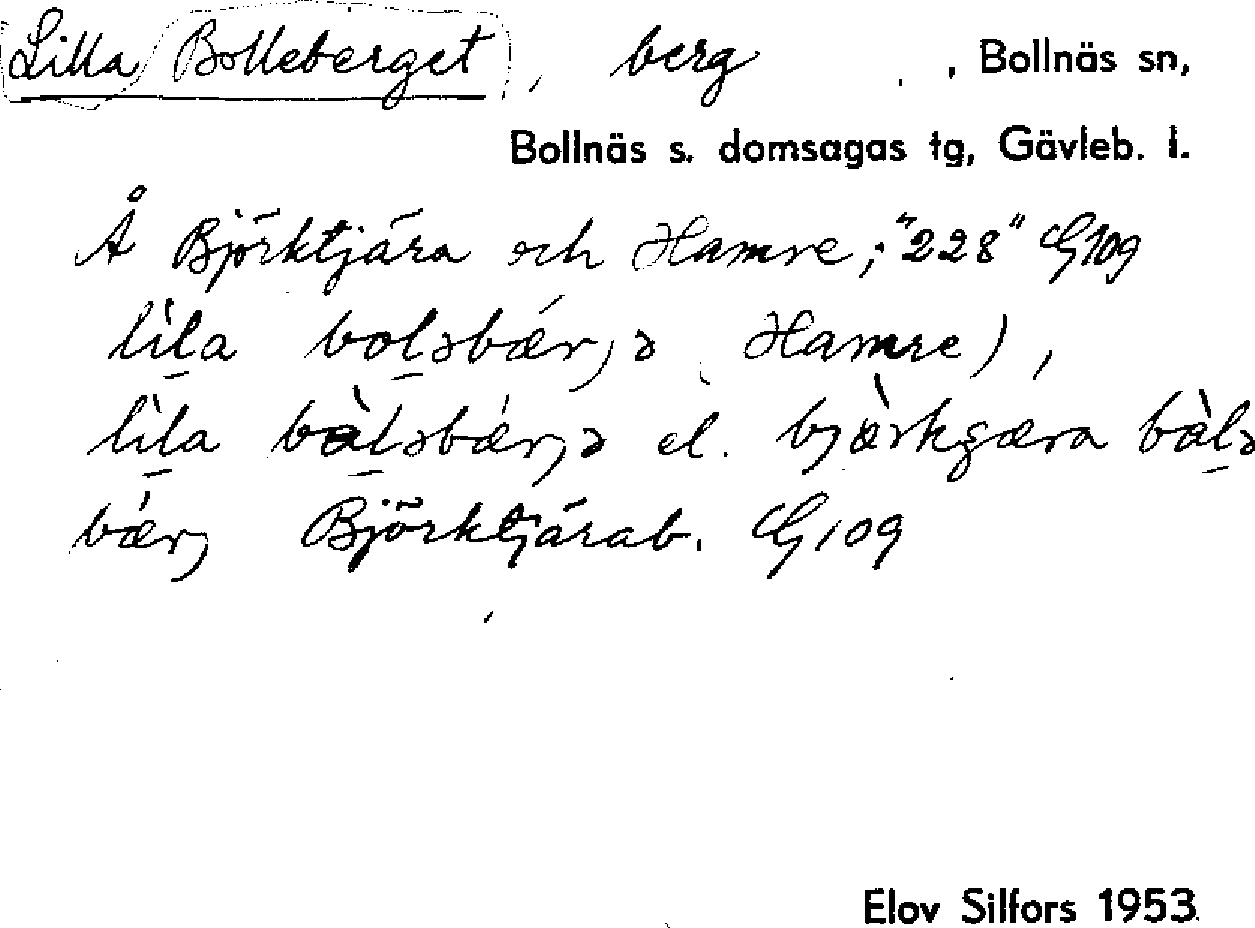 Lilla Bolleberget, berg , Bollnäs sn,
Bollnäs s. domsagas tg, Gävleb. l.
Å Björktjära och Hamre; "228" G109
lìla boləbærjə (Hamre),
lìla bàləbærjə el. bjærkgæra bàlə
bærj Björktjärab. G109
Elov Silfors 1953